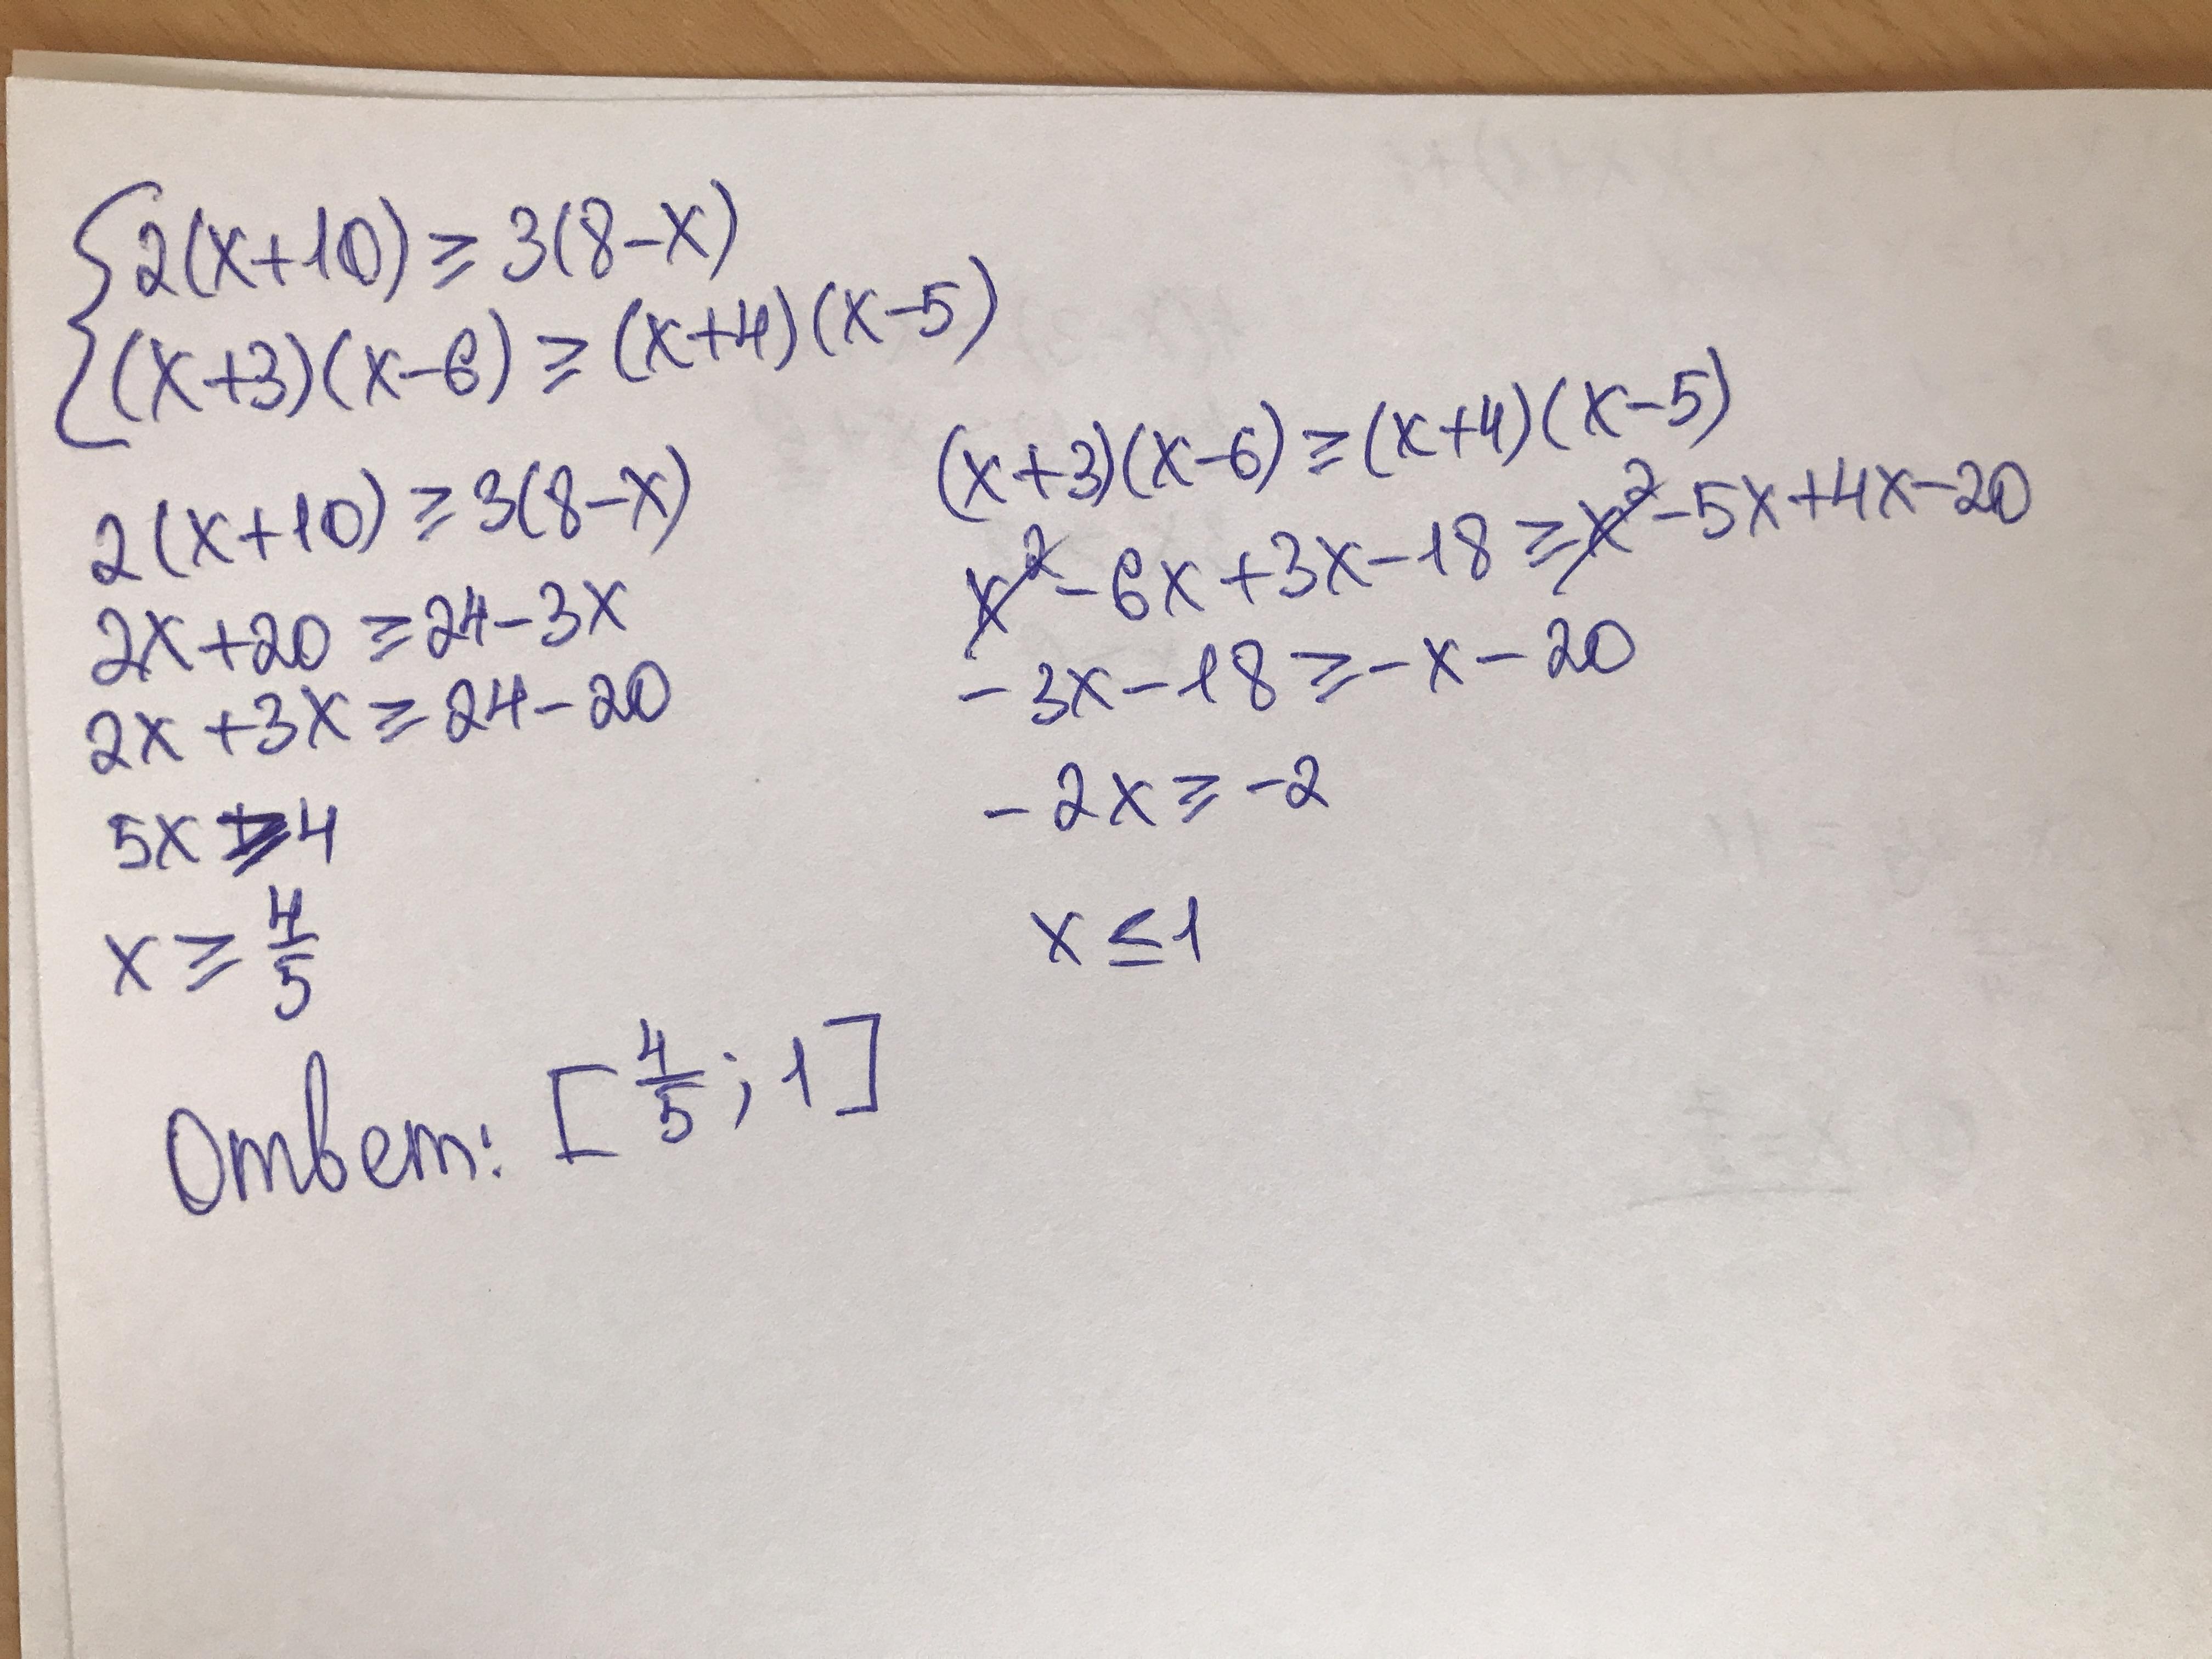 {2(x+10) ⩾ 3(8-x)
(x+3)(x-6) ⩾ (x+4)(x-5)
2(x+10) ⩾ 3(8-x)
2x+20 ⩾ 24-3x
2x+3x ⩾ 24-20
5x ⩾ 4
x ⩾ 4/5
(x+3)(x-6) ⩾ (x+4)(x-5)
x²-6x+3x-18 ⩾ x²-5x+4x-20
-3x-18 ⩾ -x-20
-2x ⩾ -2
x ≤ 1
Ответ: [4/5; 1]